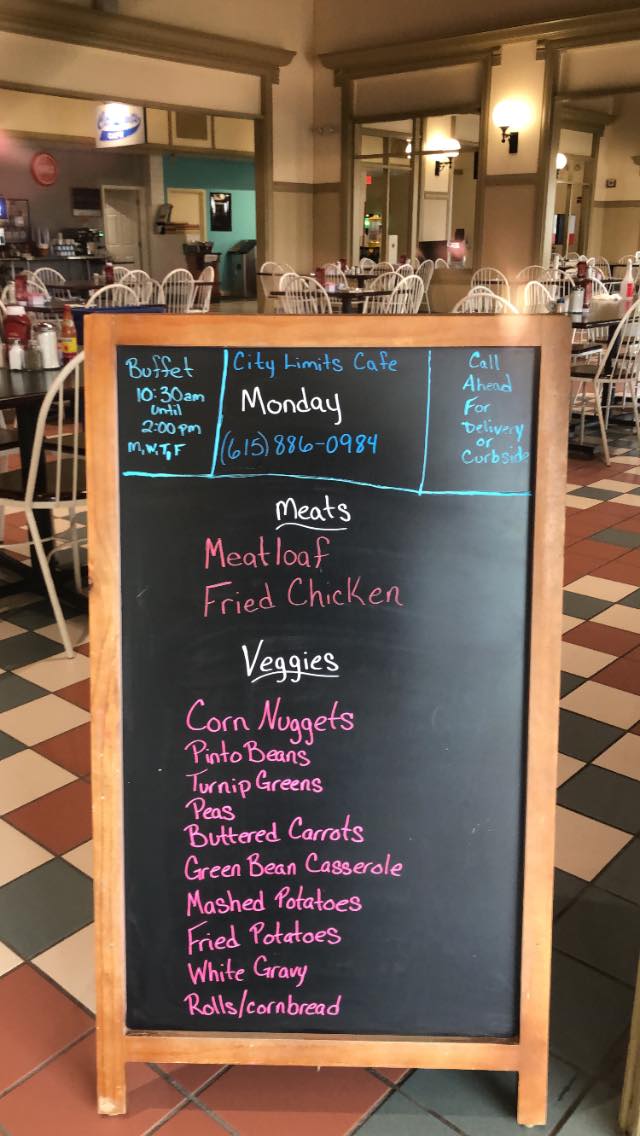 Buffet
10:30am
until
2:00 pm
M,W,T,F
City Limits Cafe
Monday
(615) 886-0984
Call
Ahead
For
Delivery
or
Curbside
Meats
Meatloaf
Fried Chicken
Veggies
Corn Nuggets
Pinto Beans
Turnip Greens
Peas
Buttered Carrots
Green Bean Casserole
Mashed Potatoes
Fried Potatoes
White Gravy
Rolls/cornbread